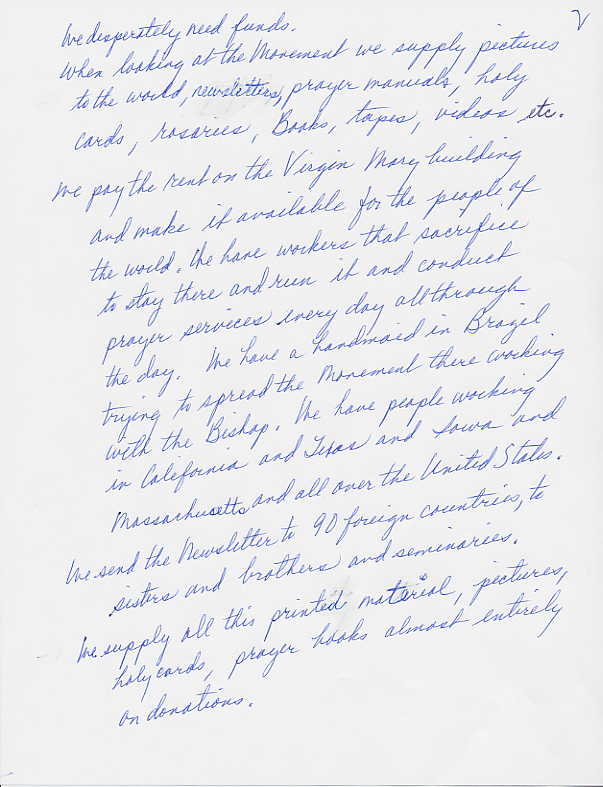 2
We desperately need funds.
When looking at the Movement we supply pictures
to the world, newsletters, prayer manuals, holy
cards, rosaries, Books, tapes, videos etc.
We pay the rent on the Virgin Mary building
and make it available for the people of
the world. We have workers that sacrifice
to stay there and run it and conduct
prayer services every day all through
the day. We have a handmaid in Brazil
trying to spread the Movement there working
with the Bishop. We have people working
in California and Texas and Iowa and
Massachusetts and all over the United States.
We send the Newsletter to 90 foreign countries, to
sisters and brothers and seminaries.
We supply all this printed material, pictures,
holy cards, prayer books almost entirely
on donations.